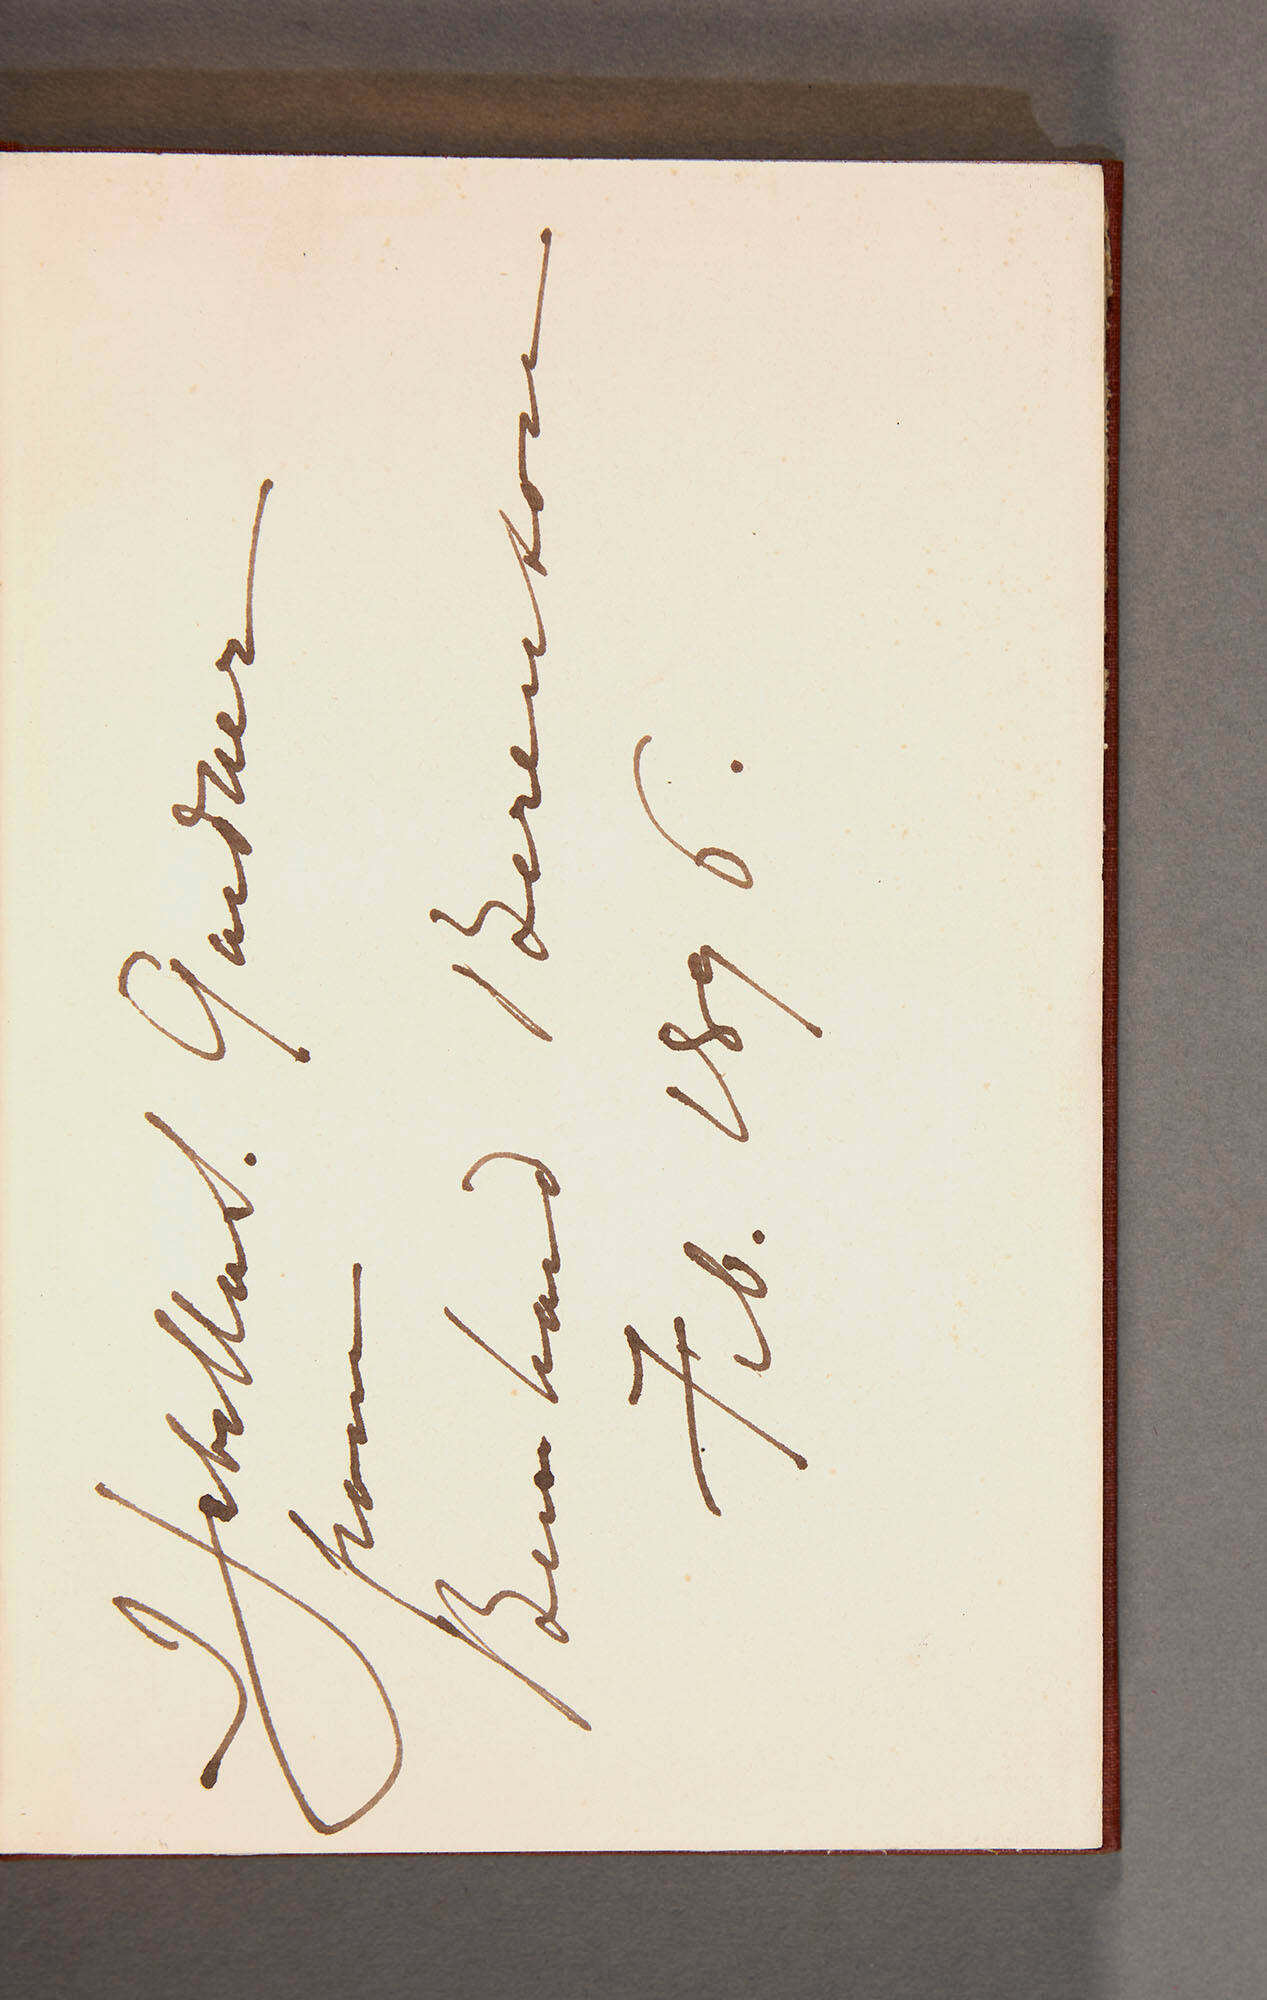 Isabella S. Gardner
from
Bernhard Berenson
Feb. 1896.